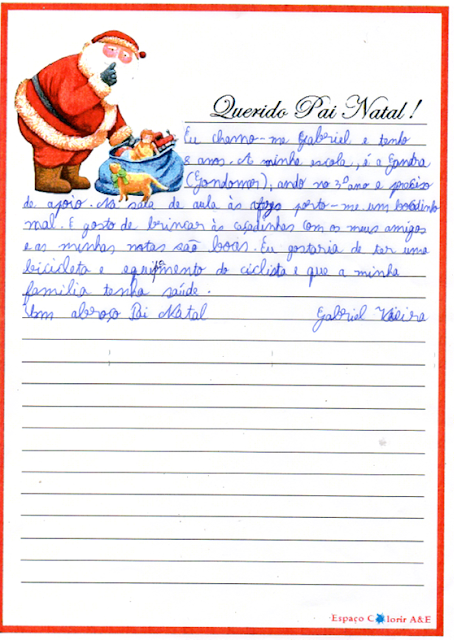 Querido Pai Natal!
Eu chamo-me Gabriel e tenho
8 anos. A minha escola, é a Gandra
(Gondomar), ando no 3º ano e preciso
de apoio. Na sala de aula às porto-me um bocadinho
mal. E gosto de brincar às caçadinhas com os meus amigos
e as minhas notas são boas. Eu gostaria de ter uma
bicicleta e equipamento do ciclista e que a minha
família tenha saúde.
Um abraço Pai Natal Gabriel Vieira
Espaço Colorir A&E